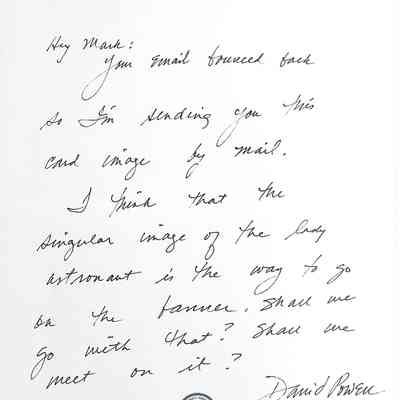 Hey Mark:
Your email bounced back
so I'm sending you this
card image by mail.
I think that the
singular image of the lady
astronaut is the way to go
on the banner. Shall we
go with that? Shall we
meet on it?
David Powell